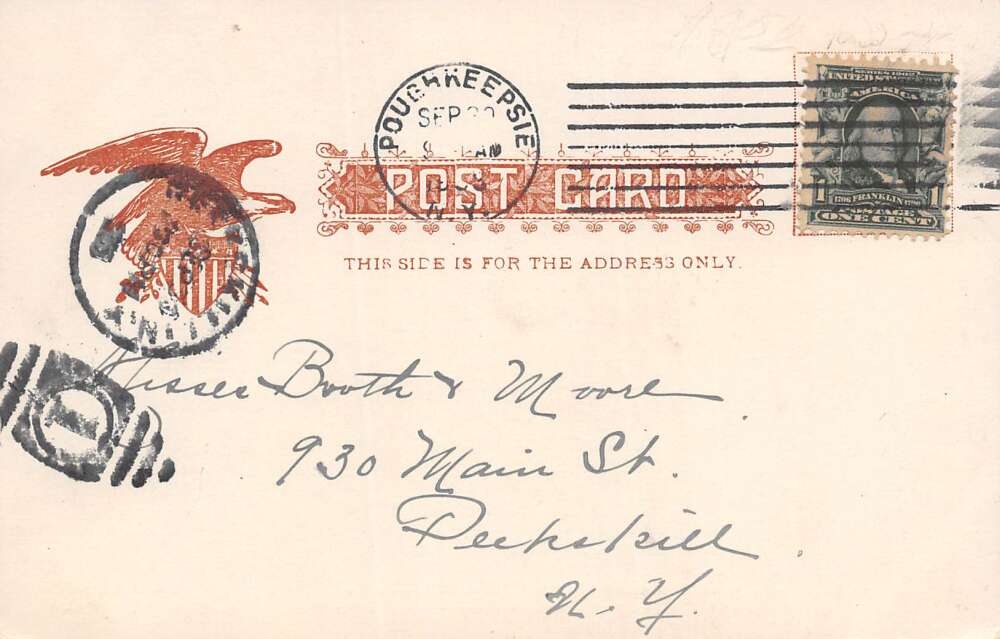 POUGHKEEPSIE
SEP 30
N.Y.
SERIES 1902
UNITED STATES OF
AMERICA
1706 FRANKLIN 1790
POSTAGE
ONE CENT
POST CARD
THIS SIDE IS FOR THE ADDRESS ONLY.
1
Misses Booth & Moore
930 Main St.
Peekskill
N.Y.